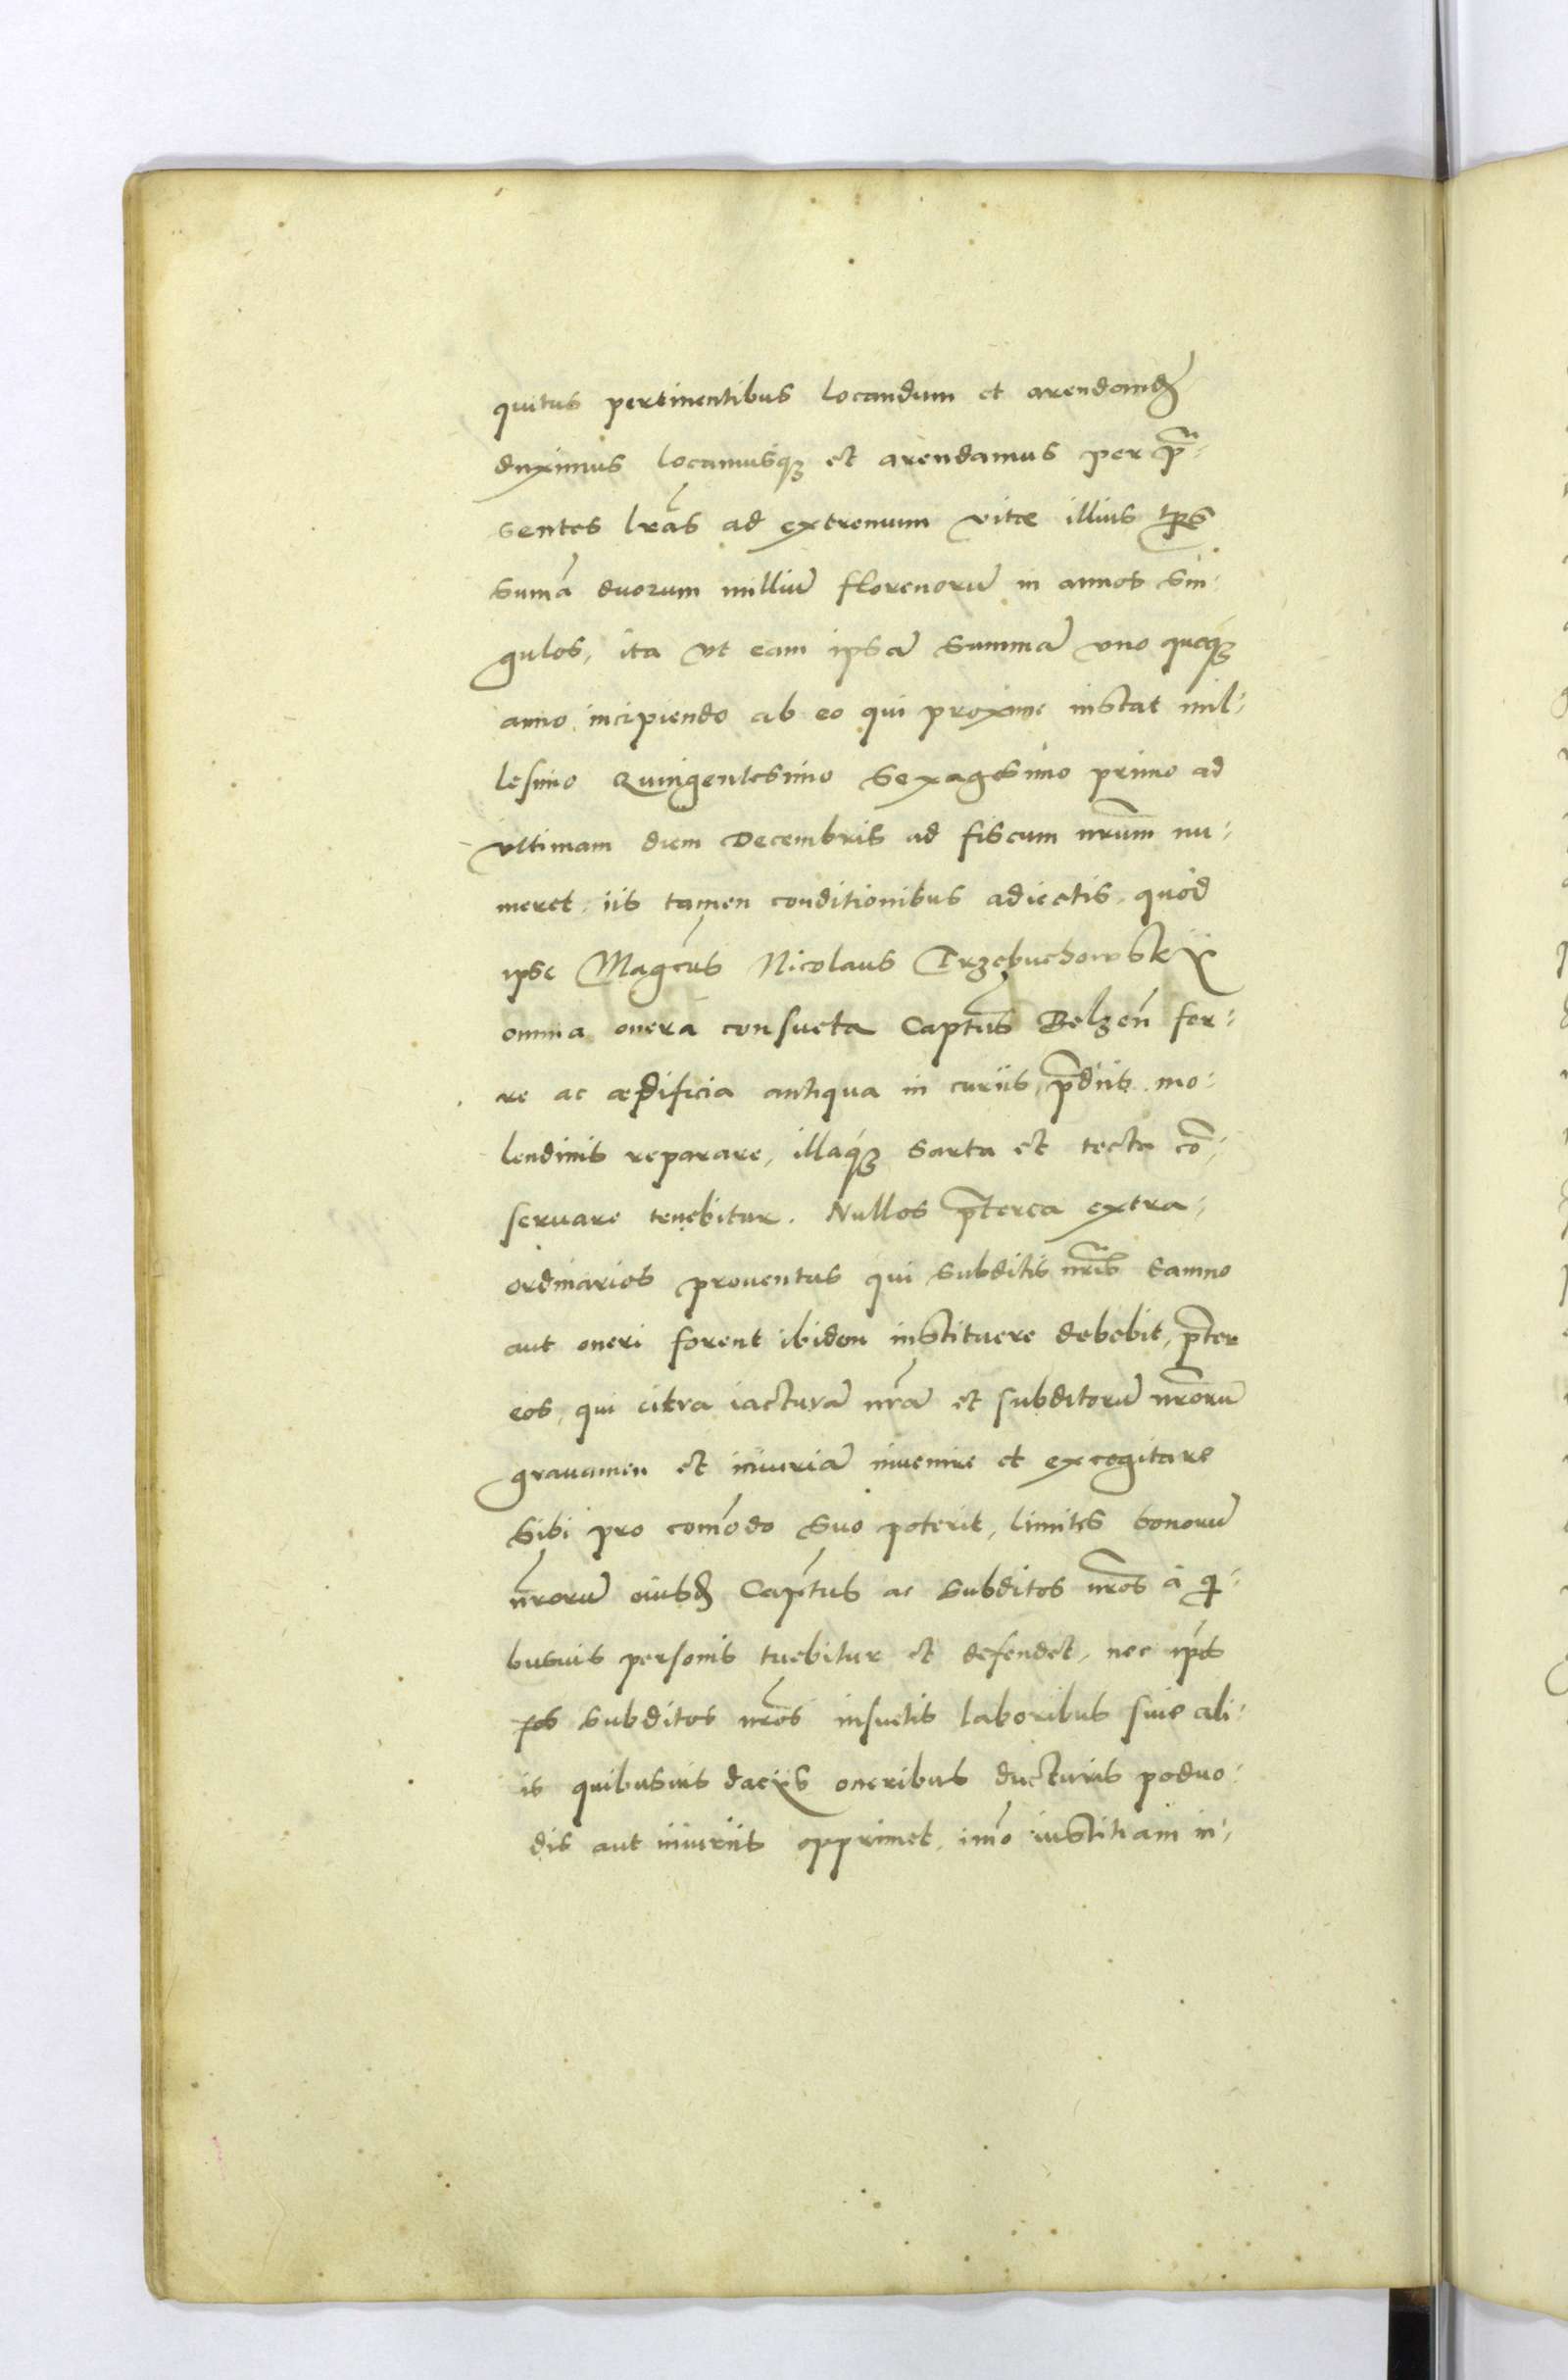 quitus pertinentibus locandum et arendamdꝫ
duximus locamusqꝫ et arendamus per p̃n-
sentes lr̃as ad extremum vitæ illius tp̃s
sum̃a duorum milliũ florenorũ in annos sin-
gulos, ita vt eam ipsã summã vno quoqꝫ
anno incipiendo ab eo qui proxime instat mil-
lesimo Quingentesimo Sexagesimo primo ad
vltimam diem Decembris ad fiscum nr̃um nu-
meret, iis tamen conditionibus adiectis, quod
ipse Magc̃us Nicolaus Trzebuchowskÿ
omnia onera consueta Capt̃us Belzen̄ fer-
re ac ædificia antiqua in curiis, p̃diis, mo-
lendinis reparare, illaqꝫ sarta et tecta cõ-
seruare tenebitur. Nullos p̃terea extra-
ordinarios prouentus qui subditis nr̃is damno
aut oneri forent ibidem instituere debebit, p̃ter
eos, qui citra iacturã nr̃ã et subditorũ nr̃orũ
grauamen et iniuriã inuenire et excogitare
sibi pro com̃odo suo poterit, limites bonorũ
nr̃orũ eiusdꝫ Capt̃us ac subditos nr̃os à qi-
busuis personis tuebitur et defendet, nec ip̃s
subditos nr̃os insuetis laboribus siue ali-
is quibusuis daciis oneribus ducturis poduo-
dis aut iniuriis opprimet, im̃o iustitiam in-